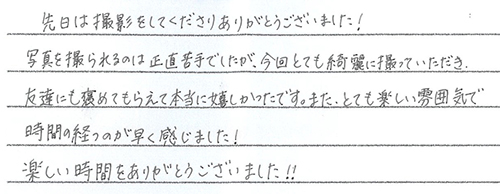 先日は撮影をしてくださりありがとうございました!
写真を撮られるのは正直苦手でしたが、今回とても綺麗に撮っていただき、
友達にも褒めてもらえて本当に嬉しかったです。また、とても楽しい雰囲気で
時間の経つのが早く感じました!
楽しい時間をありがとうございました!!